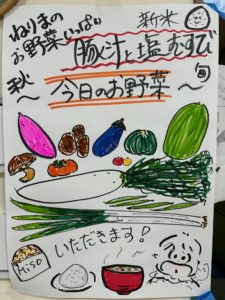 ねりまの
お野菜いっぱい
新米
豚汁と塩むすび
秋
旬
～今日のお野菜～
MISO
いただきます!